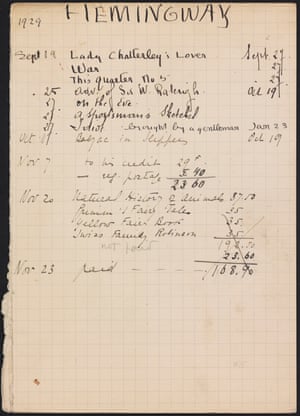 1929 HEMINGWAY
Sept 19 Lady Chatterley's Lover Sept 27
War 27
This Quarter No 5 27
25 Adv. of Sir W. Raleigh Oct 19
27 On the Eve
27 A Sportsman's Sketches
27 brought by a gentleman Jan 23
Oct Slippers Oct 19
Nov 7 to his credit 29
— reg. postage 5.40
23 60
Nov 20 Natural History of Animals 87.50
Fairy Tales 35
Yellow Fairy Book 35
Swiss Family Robinson 35
not paid 192.50
23.60
Nov 23 paid 168.90